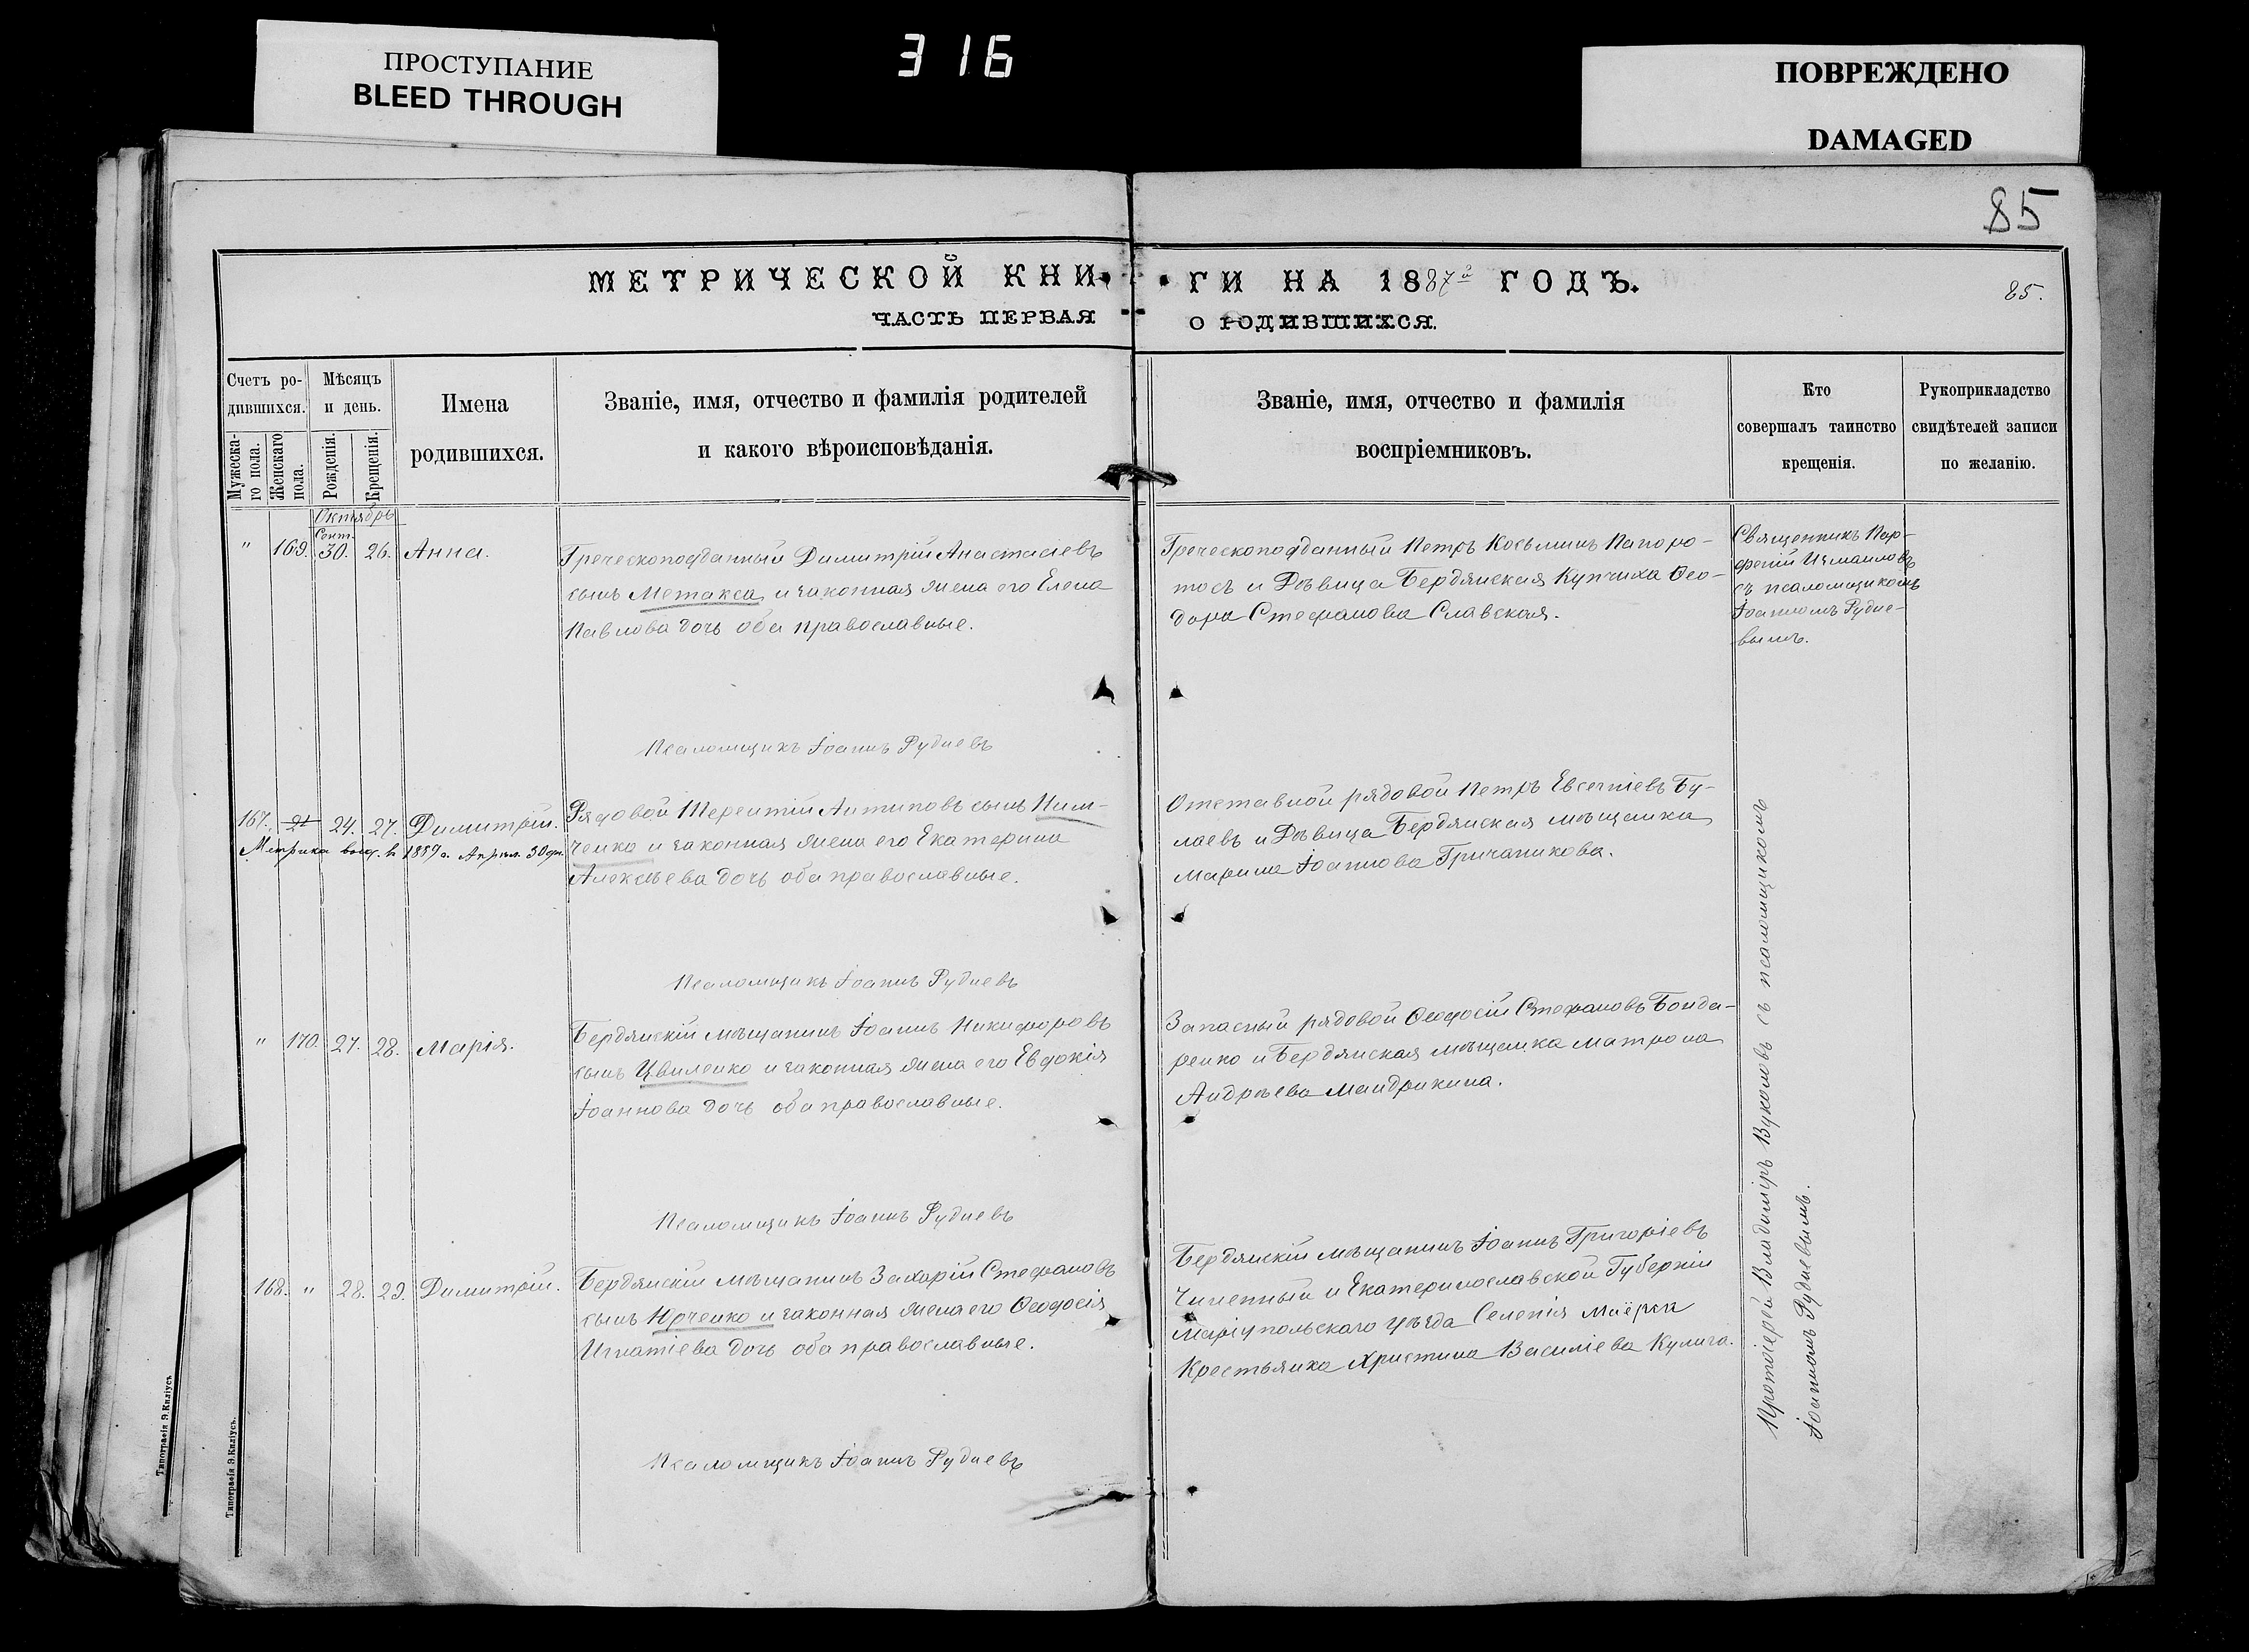 ПРОСТУПАНИЕ
BLEED THROUGH
316
ПОВРЕЖДЕНО
DAMAGED
85
МЕТРИЧЕСКОЙ КНИ-
ГИ НА 1887й ГОДЪ.
85.
ЧАСТЬ ПЕРВАЯ
О РОДИВШИХСЯ.
Счетъ ро-
дившихся.
Мужеска-
го пола.
Женскаго
пола.
Мѣсяцъ
и день.
Рожденія.
Крещенія.
Имена
родившихся.
Званіе, имя, отчество и фамилія родителей
и какого вѣроисповѣданія.
Званіе, имя, отчество и фамилія
воспріемниковъ.
Кто
совершалъ таинство
крещенія.
Рукоприкладство
свидѣтелей записи
по желанію.
Октябрь
Сент.
" 169. 30. 26. Анна.
Греческоподданный Димитрій Анастасіевъ
сынъ Метакса и законная жена его Елена
Павлова дочь оба православные.
Греческоподданный Петръ Косьминъ Папоро-
тосъ и Дѣвица Бердянская Купчиха Ѳео-
дора Стефанова Славская.
Священникъ Пар-
феній Измаиловъ
съ псаломщикомъ
Іоанномъ Рудне-
вымъ.
Псаломщикъ Іоаннъ Рудневъ
167. 24. 27. Димитрій.
Метрика выд. в 1889 г. Апрѣл. 30 дн.
Рядовой Терентій Антиповъ сынъ Ним-
ченко и законная жена его Екатерина
Алексѣева дочь оба православные.
Отставной рядовой Петръ Евсегніевъ Бу-
лаевъ и Дѣвица Бердянская мѣщанка
Марина Іоаннова Гричаникова.
Псаломщикъ Іоаннъ Рудневъ
" 170. 27. 28. Марія.
Бердянскій мѣщанинъ Іоаннъ Никифоровъ
сынъ Цвиленко и законная жена его Евдокія
Іоаннова дочь оба православные.
Запасный рядовой Ѳеодосій Стефановъ Бонда-
ренко и Бердянская мѣщанка Матрона
Андрѣева Мандрикина.
Псаломщикъ Іоаннъ Рудневъ
168. " 28. 29. Димитрій.
Бердянскій мѣщанинъ Захарій Стефановъ
сынъ Юрченко и законная жена его Ѳеодосія
Игнатіева дочь оба православные.
Бердянскій мѣщанинъ Іоаннъ Григоріевъ
и Екатеринославской Губерніи
Маріупольскаго уѣзда Селенія Маіерска
Крестьянка Христина Василіева Кулига.
Протоіерей Владиміръ Вуколовъ съ псаломщикомъ
Іоанномъ Рудневымъ.
Псаломщикъ Іоаннъ Рудневъ
Типографія Э. Киліусъ.
Типографія Э. Киліусъ.